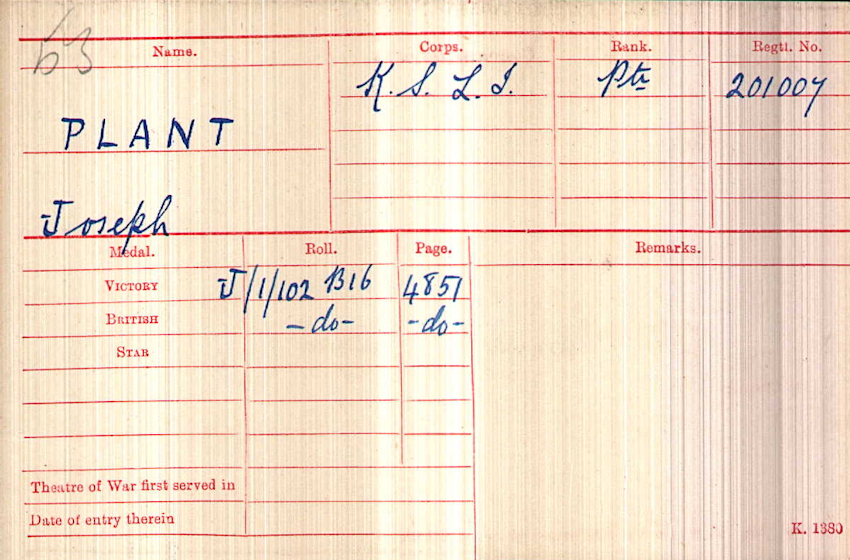 63
Name. Corps. Rank. Regtl. No.
K. S. L. I. Pte 201007
PLANT
Joseph
Medal. Roll. Page. Remarks.
VICTORY J/1/102 B16 4851
BRITISH -do- -do-
STAR
Theatre of War first served in
Date of entry therein
K. 1380